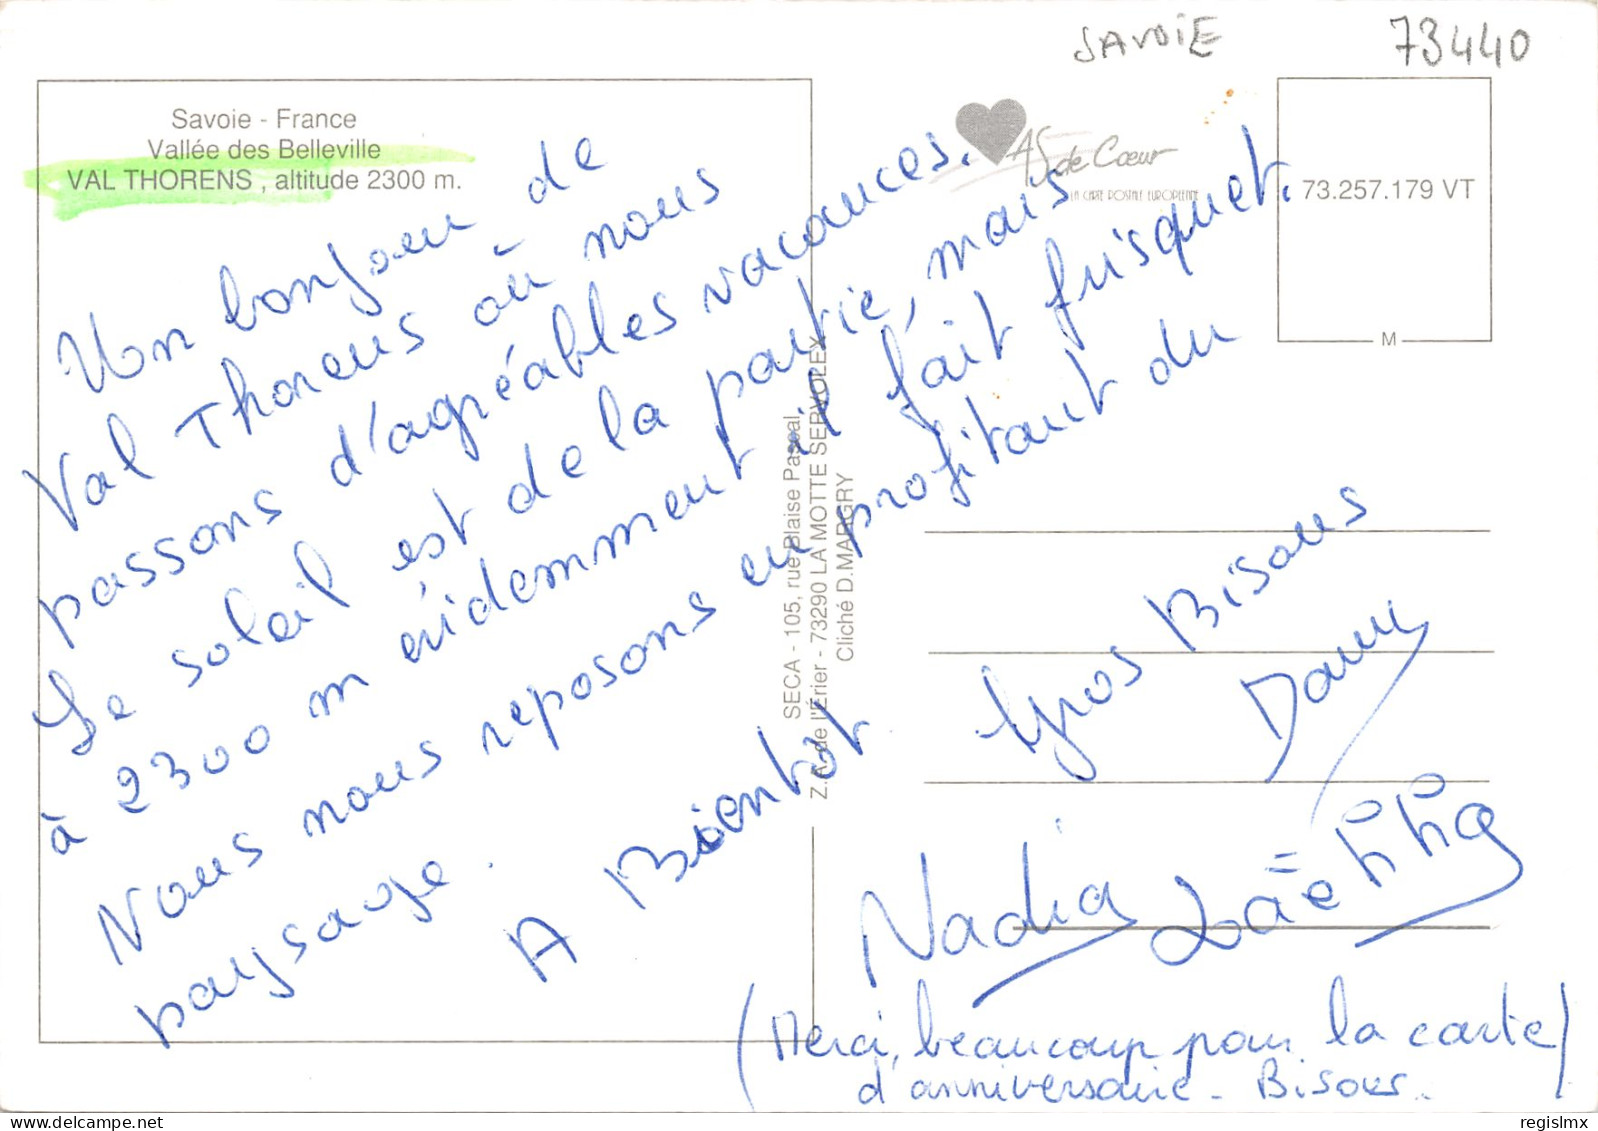 SAVOIE
73440
Savoie - France
Vallée des Belleville
VAL THORENS , altitude 2300 m.
AS de Cœur
LA CARTE POSTALE EUROPÉENNE
73.257.179 VT
M
Un bonjour de
Val Thorens où nous
passons d'agréables vacances.
Le soleil est de la partie, mais
à 2300 m évidemment il fait frisquet.
Nous nous reposons en profitant du
paysage.
A Bientôt
SECA - 105, rue Blaise Pascal,
Z.A. de l'Érier - 73290 LA MOTTE SERVOLEX
Cliché D.MARGRY
Gros Bisous
Nadia
Laëtitia
(Merci, beaucoup pour la carte)
d'anniversaire - Bisous..
regislmx